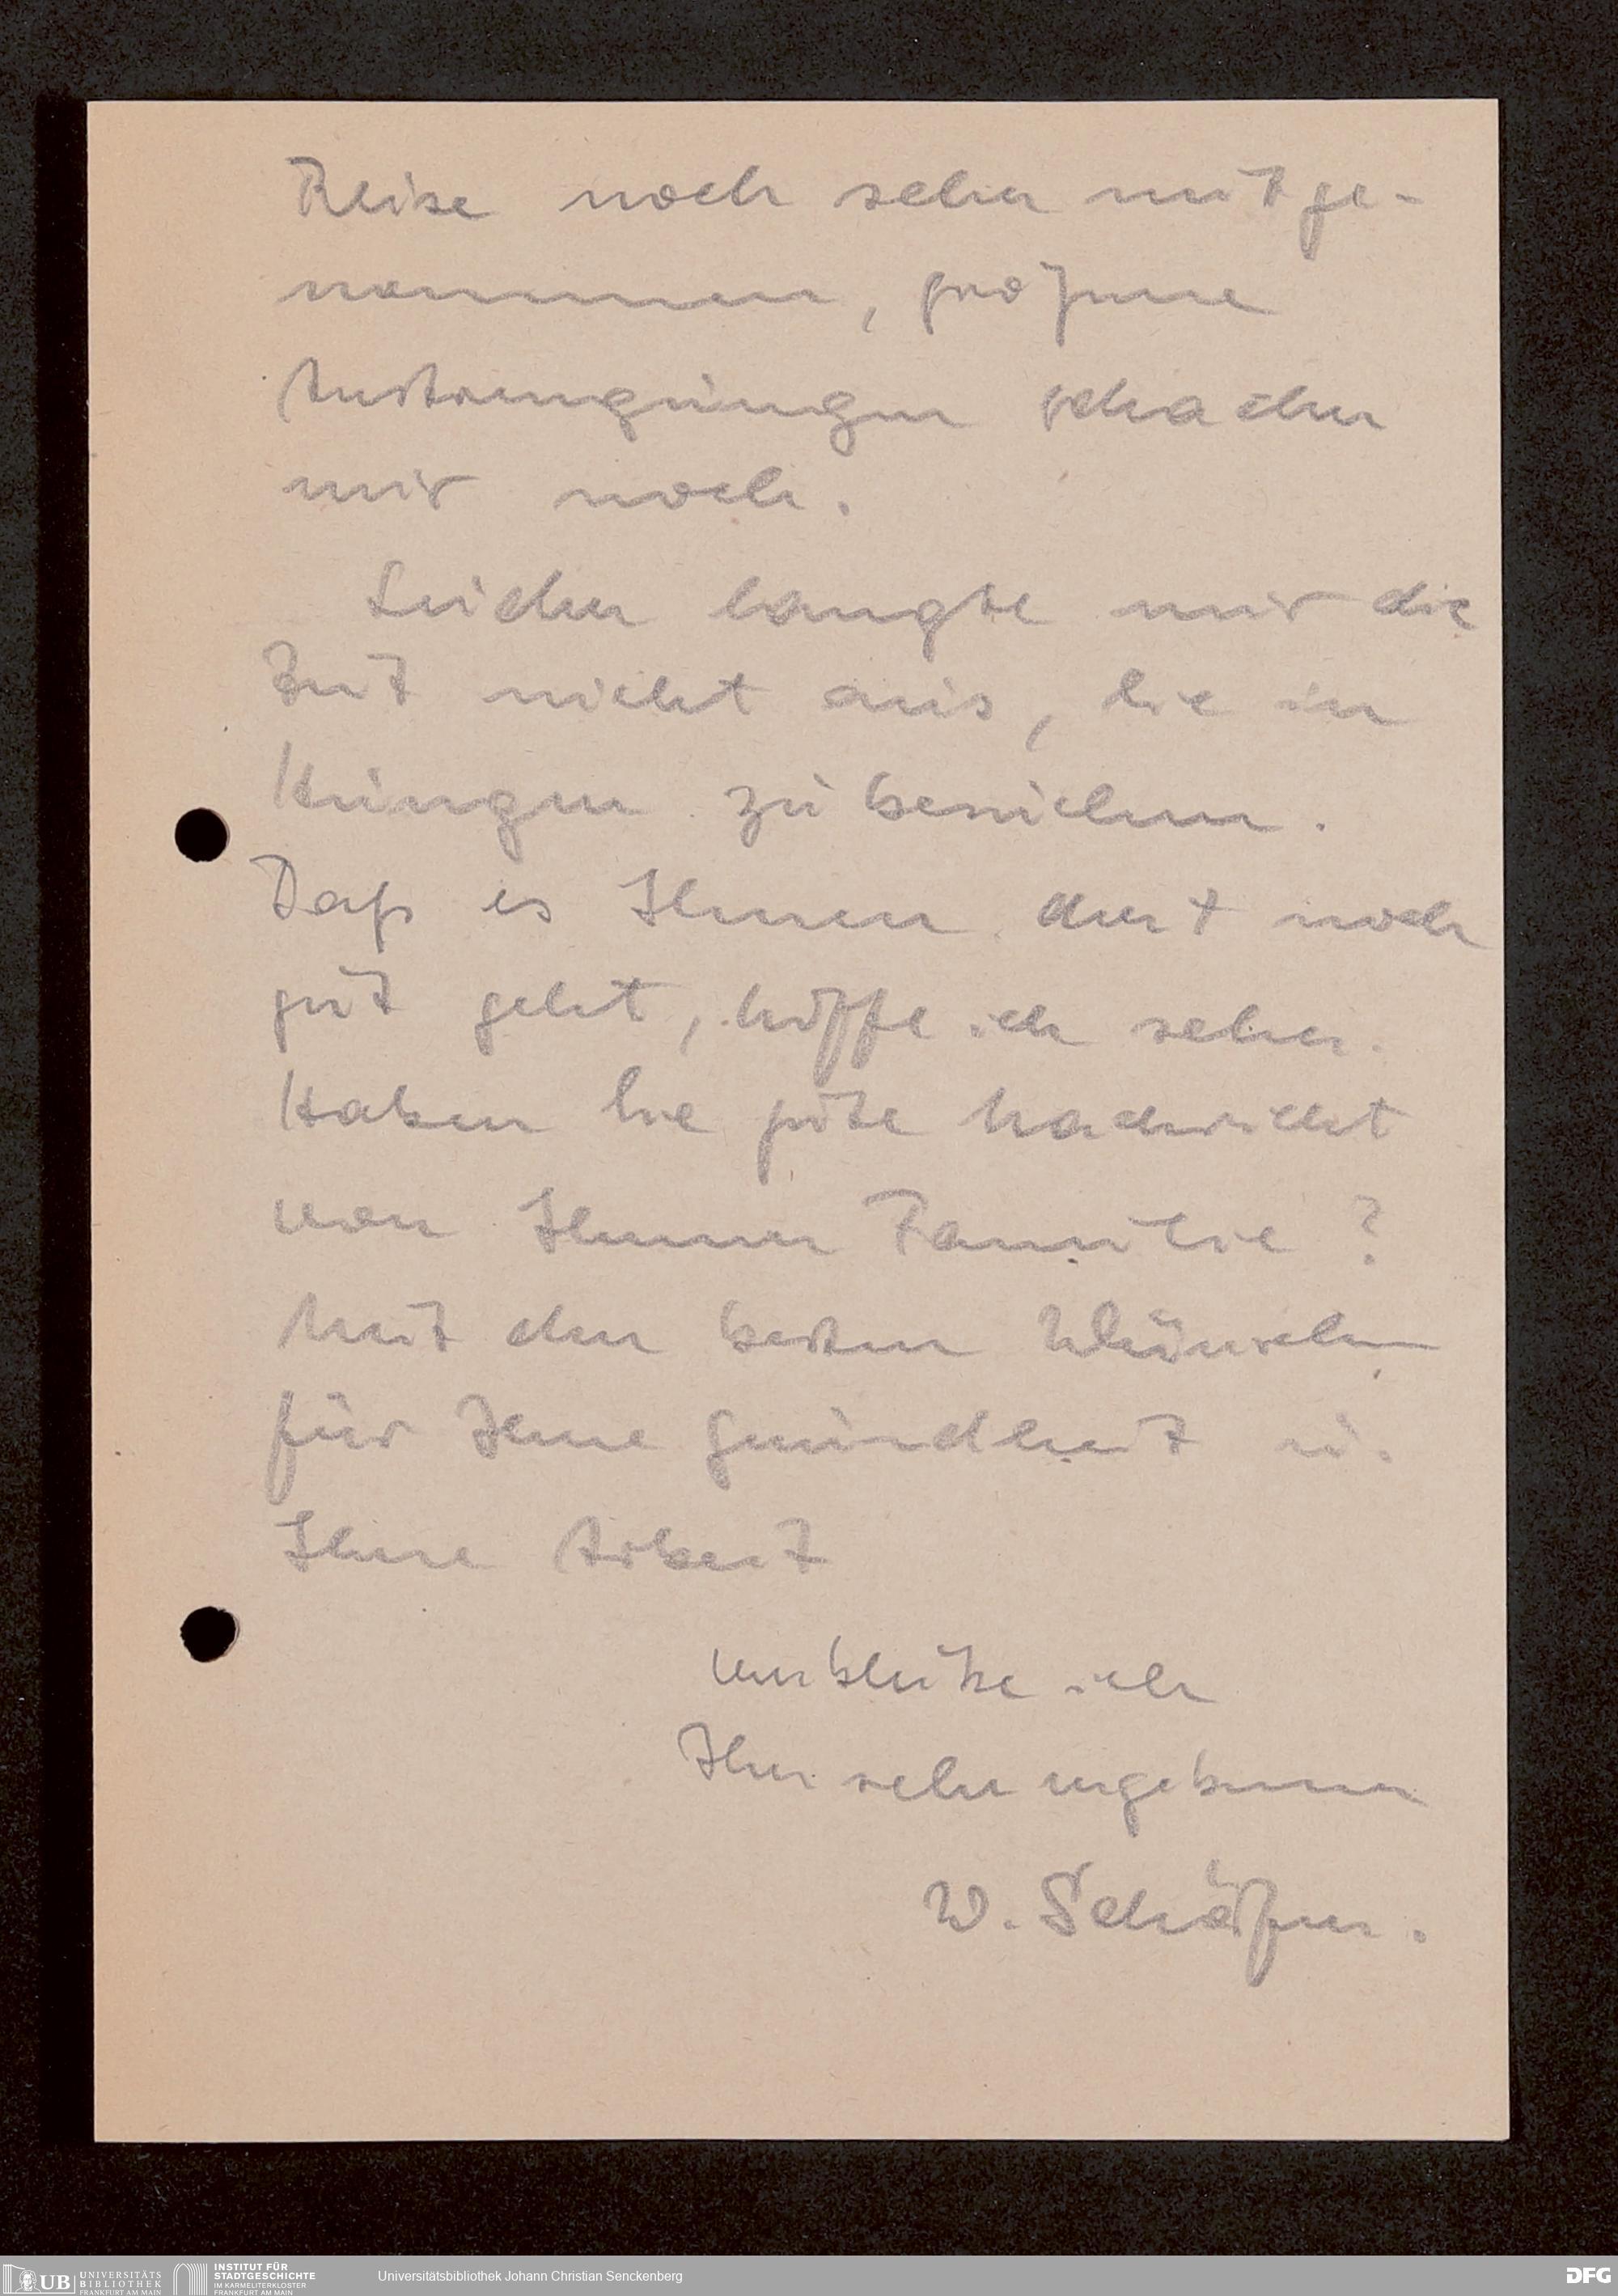 Reise noch sehr mitge-
nommen, größere
Anstrengungen schaden
mir noch.
Leider langte mir die
Zeit nicht aus, Sie in
Hungen zu besuchen.
Daß es Ihnen dort noch
gut geht, hoffe ich sehr.
Haben Sie gute Nachricht
von Ihrer Familie?
Mit den besten Wünschen
für Ihre Gesundheit u.
Ihre Arbeit
verbleibe ich
Ihr sehr ergebener
W. Schäfer.
UB UNIVERSITÄTS
BIBLIOTHEK
FRANKFURT AM MAIN
INSTITUT FÜR
STADTGESCHICHTE
IM KARMELITERKLOSTER
FRANKFURT AM MAIN
Universitätsbibliothek Johann Christian Senckenberg
DFG